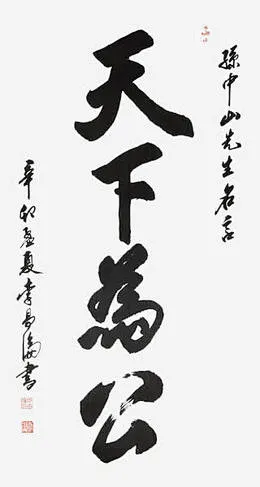 孫中山先生名言
天下為公
辛卯夏李書